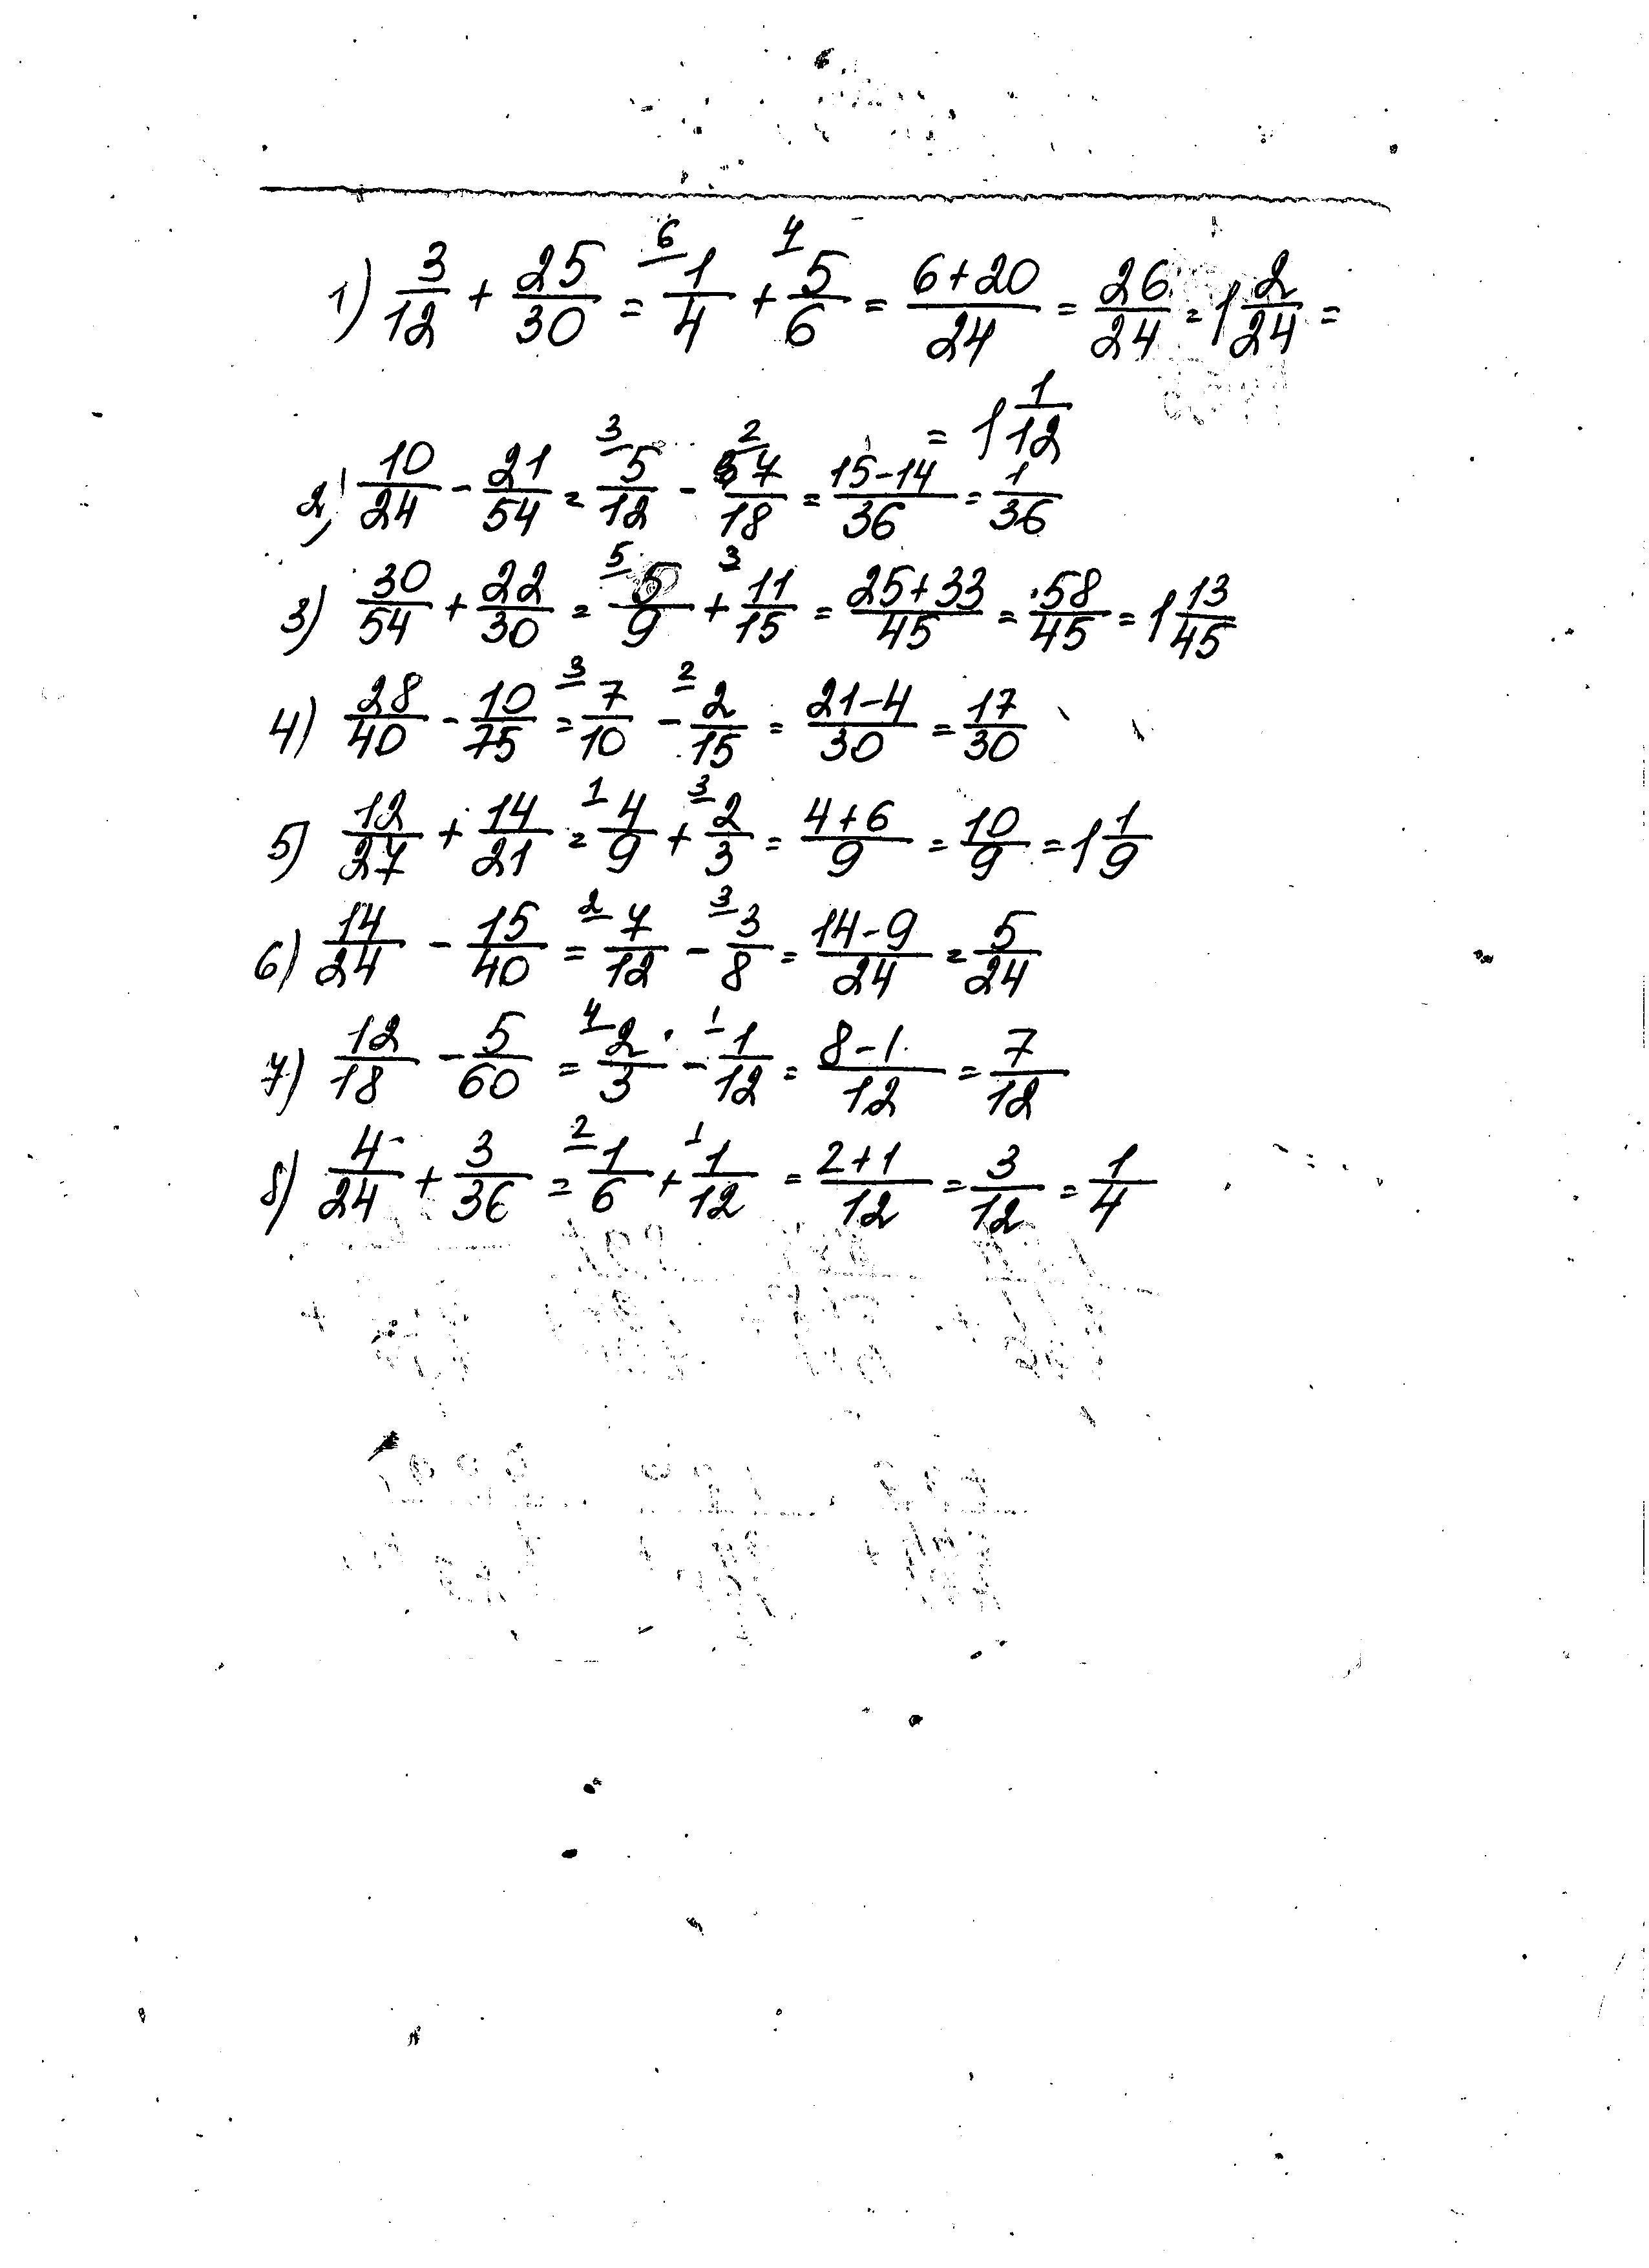 1) 3/12 + 25/30 = 6 1/4 + 4 5/6 = 6+20/24 = 26/24 = 1 2/24 =
= 1 1/12
2) 10/24 - 21/54 = 3 5/12 - 2 7/18 = 15-14/36 = 1/36
3) 30/54 + 22/30 = 5 5/9 + 3 11/15 = 25+33/45 = 58/45 = 1 13/45
4) 28/40 - 10/75 = 3 7/10 - 2 2/15 = 21-4/30 = 17/30
5) 12/27 + 14/21 = 1 4/9 + 3 2/3 = 4+6/9 = 10/9 = 1 1/9
6) 14/24 - 15/40 = 2 7/12 - 3 3/8 = 14-9/24 = 5/24
7) 12/18 - 5/60 = 4 2/3 - 1 1/12 = 8-1/12 = 7/12
8) 4/24 + 3/36 = 2 1/6 + 1 1/12 = 2+1/12 = 3/12 = 1/4